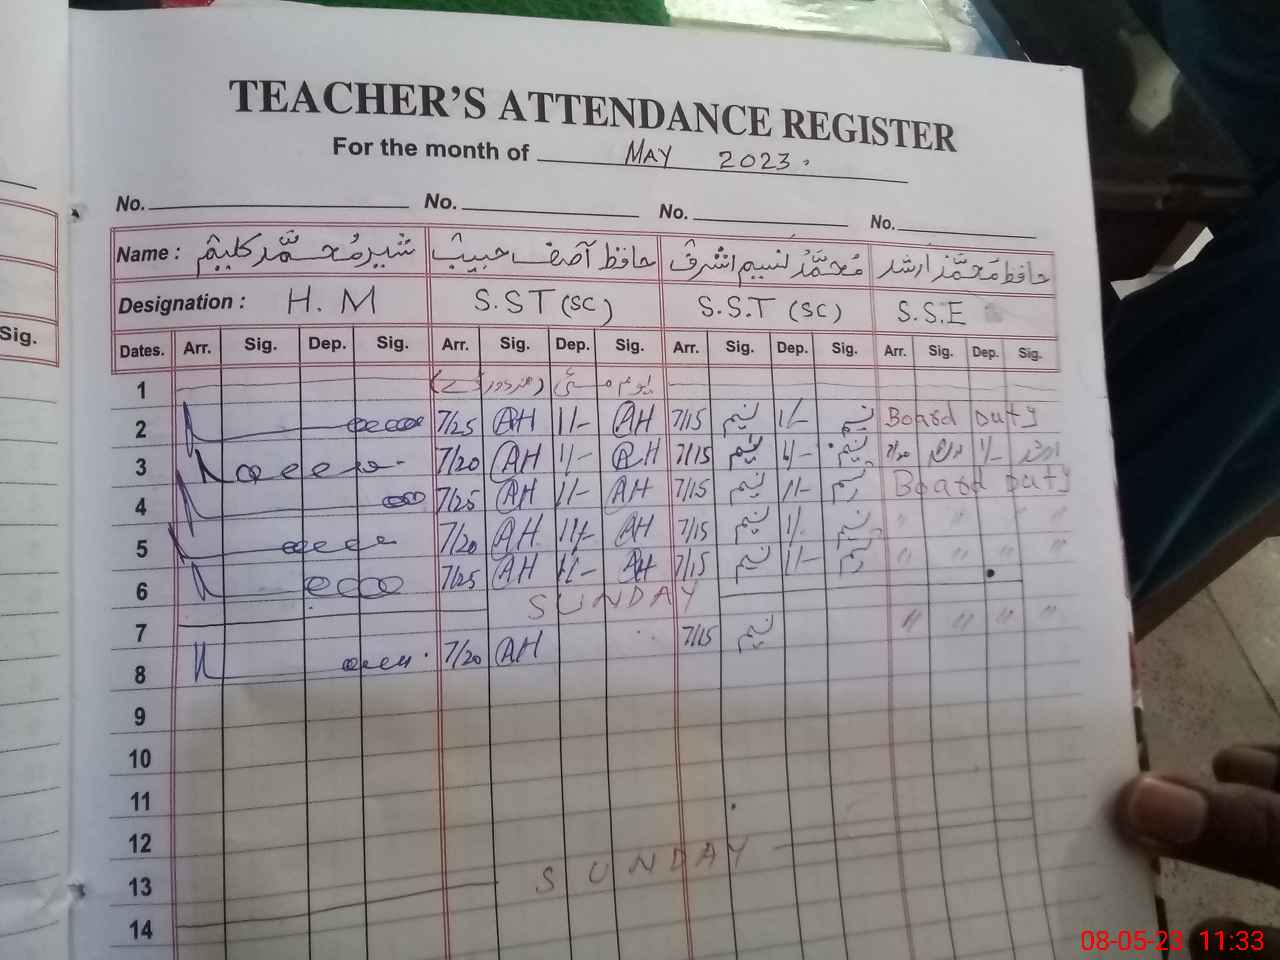 TEACHER'S ATTENDANCE REGISTER
For the month of MAY 2023.
No. No. No. No.
Name : شیر محمد کلیم حافظ آصف حبیب محمد نسیم اشرف حافظ محمد ارشد
Designation : H. M S.ST (SC) S.S.T (SC) S.S.E
Sig.
Dates. Arr. Sig. Dep. Sig. Arr. Sig. Dep. Sig. Arr. Sig. Dep. Sig. Arr. Sig. Dep. Sig.
1 یوم مئی (مزدور ڈے)
2 7/25 AH 1/- AH 7/15 نسیم 1/- نسیم Board Duty
3 7/20 AH 1/- AH 7/15 نسیم 1/- نسیم 7/20 ارشد 1/- ارشد
4 7/25 AH 1/- AH 7/15 نسیم 1/- نسیم Board Duty
5 7/20 AH 1/- AH 7/15 نسیم 1/- نسیم " " " "
6 7/25 AH 1/- AH 7/15 نسیم 1/- نسیم " " " "
7 SUNDAY
8 7/20 AH 7/15 نسیم " " " "
9
10
11
12
13
SUNDAY
14
08-05-23 11:33